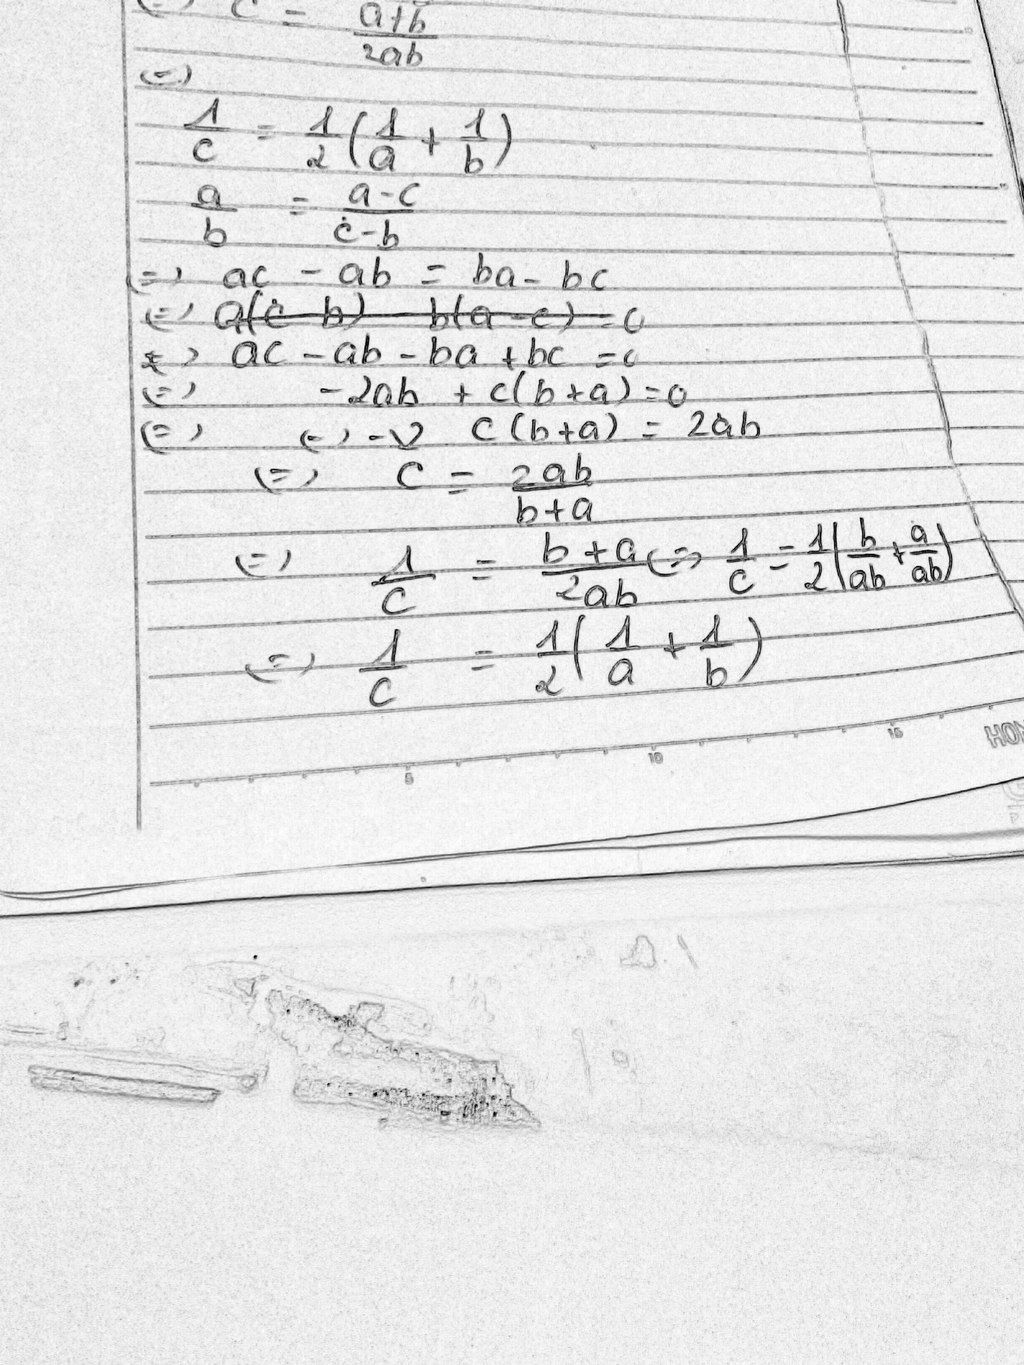 (=) C = a+b/2ab
(=)
1/c = 1/2(1/a + 1/b)
a/b = a-c/c-b
(=) ac - ab = ba - bc
(=) a(c-b) b(a-c) = 0
(=) ac - ab - ba + bc = 0
(=) -2ab + c(b+a) = 0
(=) (=) -> c(b+a) = 2ab
(=) C = 2ab/b+a
(=) 1/c = b+a/2ab (=) 1/c = 1/2(b/ab + a/ab)
(=) 1/c = 1/2(1/a + 1/b)
5 10 15